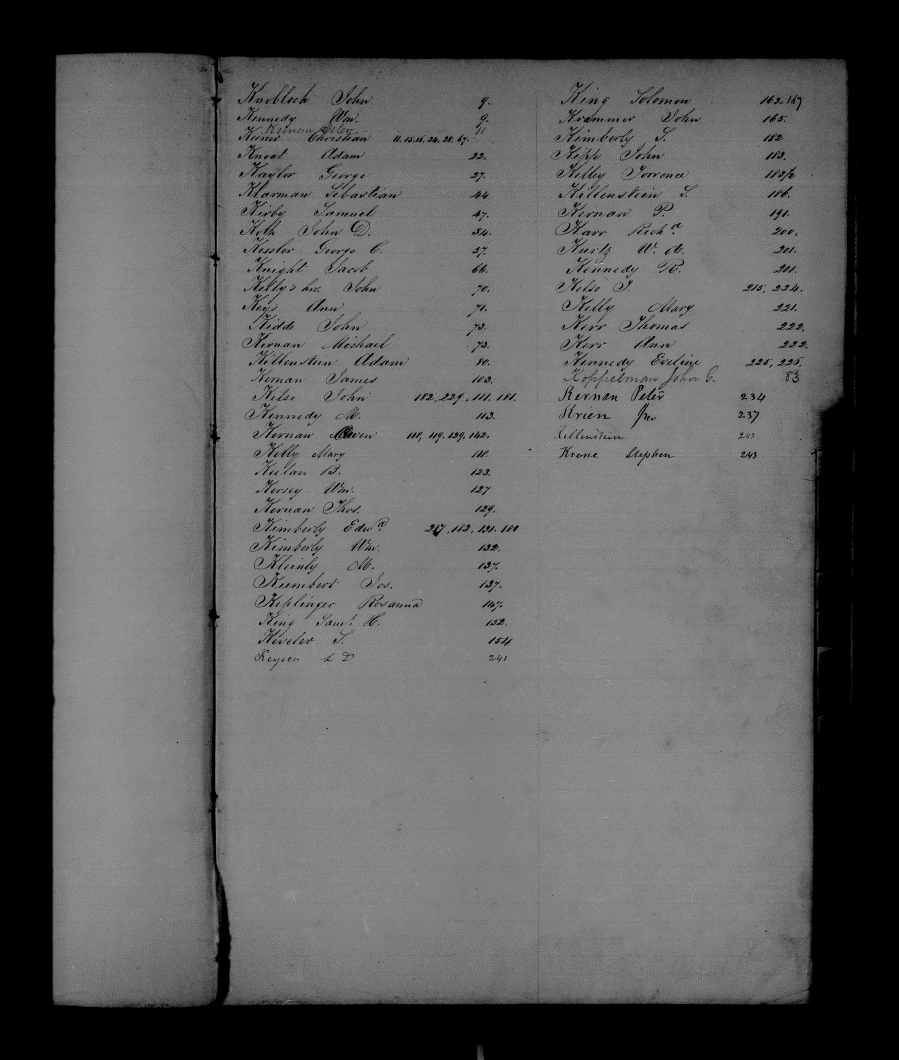 Knobloch John 9.
Kennedy Wm. 9.
Kernan Peter 11
Keiner Christian 11. 15. 16, 24, 28, 67.
Knoat Adam 22.
Kaylor George 27.
Klarman Sebastian 44
Kirby Samuel 47.
Koth John D. 54.
Kessler George C. 57.
Knight Jacob 66.
Kelly's hrs. John 70.
Keys Ann 71.
Kidd John 73.
Kernan Mechael 73.
Killenstein Adam 80.
Kernan James 103.
Kelso John 182, 229, 111, 181.
Kennedy M. 113.
Kernan Owen 118, 119, 129, 142.
Kelly Mary 118.
Keelan B. 123.
Kersey Wm. 127
Kernan Thos. 129.
Kimberly Edwd. 217, 182, 131, 180
Kimberly Wm. 132.
Kleinly M. 137.
Kumbert Jos. 137.
Keplinger Rosanna 147.
King Saml. H. 152.
Keveler S. 154
Keyser 241
King Solomon 163. 187
Krammer John 165.
Kimberly S. 182
Kipp John 183.
Kelley Torrence
Killenstein S. 186.
Kernan P. 191.
Karr Richd. 200.
Kurtz W. A. 201.
Kennedy R. 201.
Kelso T. 215, 224.
Kelly Mary 221.
Kerr Thomas 222.
Kerr Ann 222.
Kennedy Eveline 225, 225.
Koppelman John G. 83
Kernan Peter 234
Krien Jno 237
Killenstein 243
Krone Stephen 243